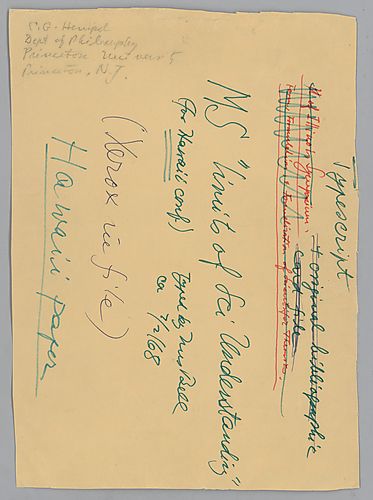 P.G. Hempel
Dept of Philosophy
Princeton University
Princeton, N.J.
Typescript
+ original bibliographic
card file
MS "Limits of Sci Understanding"
(for Hawaii conf)
Typed by Mrs Bell
ca 7/2/68
(Xerox in file)
Hawaii paper